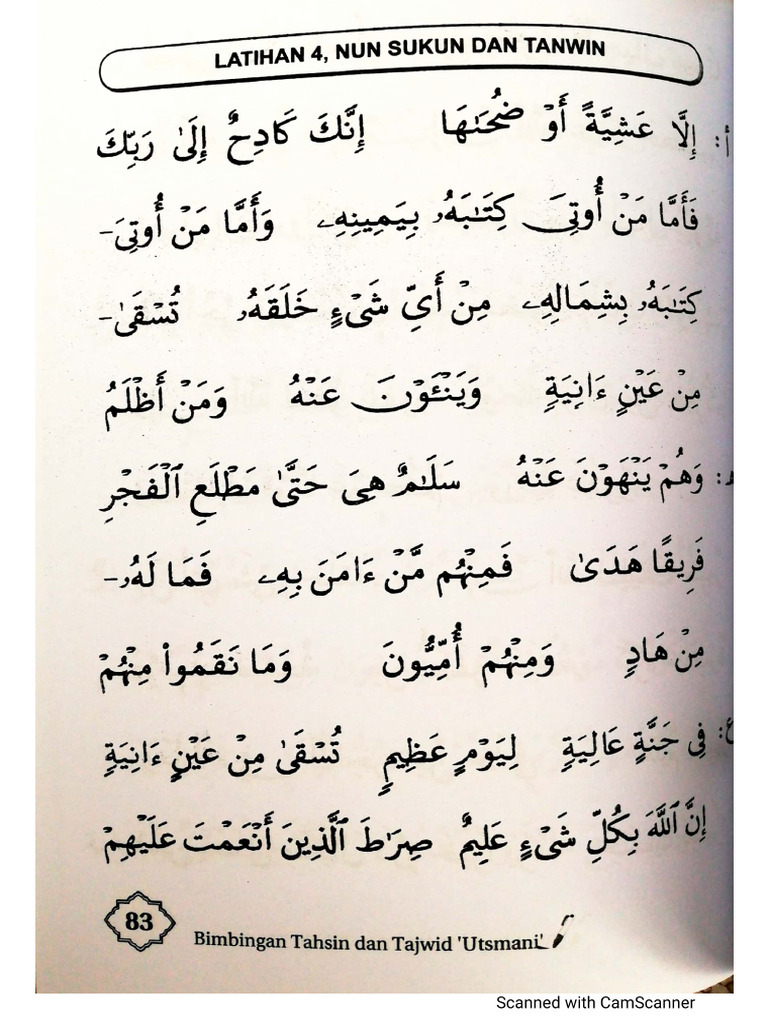 LATIHAN 4, NUN SUKUN DAN TANWIN
أ: إِلَّا عَشِيَّةً أَوْ ضُحَىٰهَا إِنَّكَ كَادِحٌ إِلَىٰ رَبِّكَ
فَأَمَّا مَنْ أُوتِىَ كِتَـٰبَهُۥ بِيَمِينِهِۦ وَأَمَّا مَنْ أُوتِىَ-
كِتَـٰبَهُۥ بِشِمَالِهِۦ مِنْ أَىِّ شَىْءٍ خَلَقَهُۥ تُسْقَىٰ-
مِنْ عَيْنٍ ءَانِيَةٍ وَيَنْـَٔوْنَ عَنْهُ وَمَنْ أَظْلَمُ
ه: وَهُمْ يَنْهَوْنَ عَنْهُ سَلَـٰمٌ هِىَ حَتَّىٰ مَطْلَعِ ٱلْفَجْرِ
فَرِيقًا هَدَىٰ فَمِنْهُم مَّنْ ءَامَنَ بِهِۦ فَمَا لَهُۥ-
مِنْ هَادٍ وَمِنْهُمْ أُمِّيُّونَ وَمَا نَقَمُوا۟ مِنْهُمْ
ع: فِى جَنَّةٍ عَالِيَةٍ لِيَوْمٍ عَظِيمٍ تُسْقَىٰ مِنْ عَيْنٍ ءَانِيَةٍ
إِنَّ ٱللَّهَ بِكُلِّ شَىْءٍ عَلِيمٌ صِرَٰطَ ٱلَّذِينَ أَنْعَمْتَ عَلَيْهِمْ
83 Bimbingan Tahsin dan Tajwid 'Utsmani'
Scanned with CamScanner